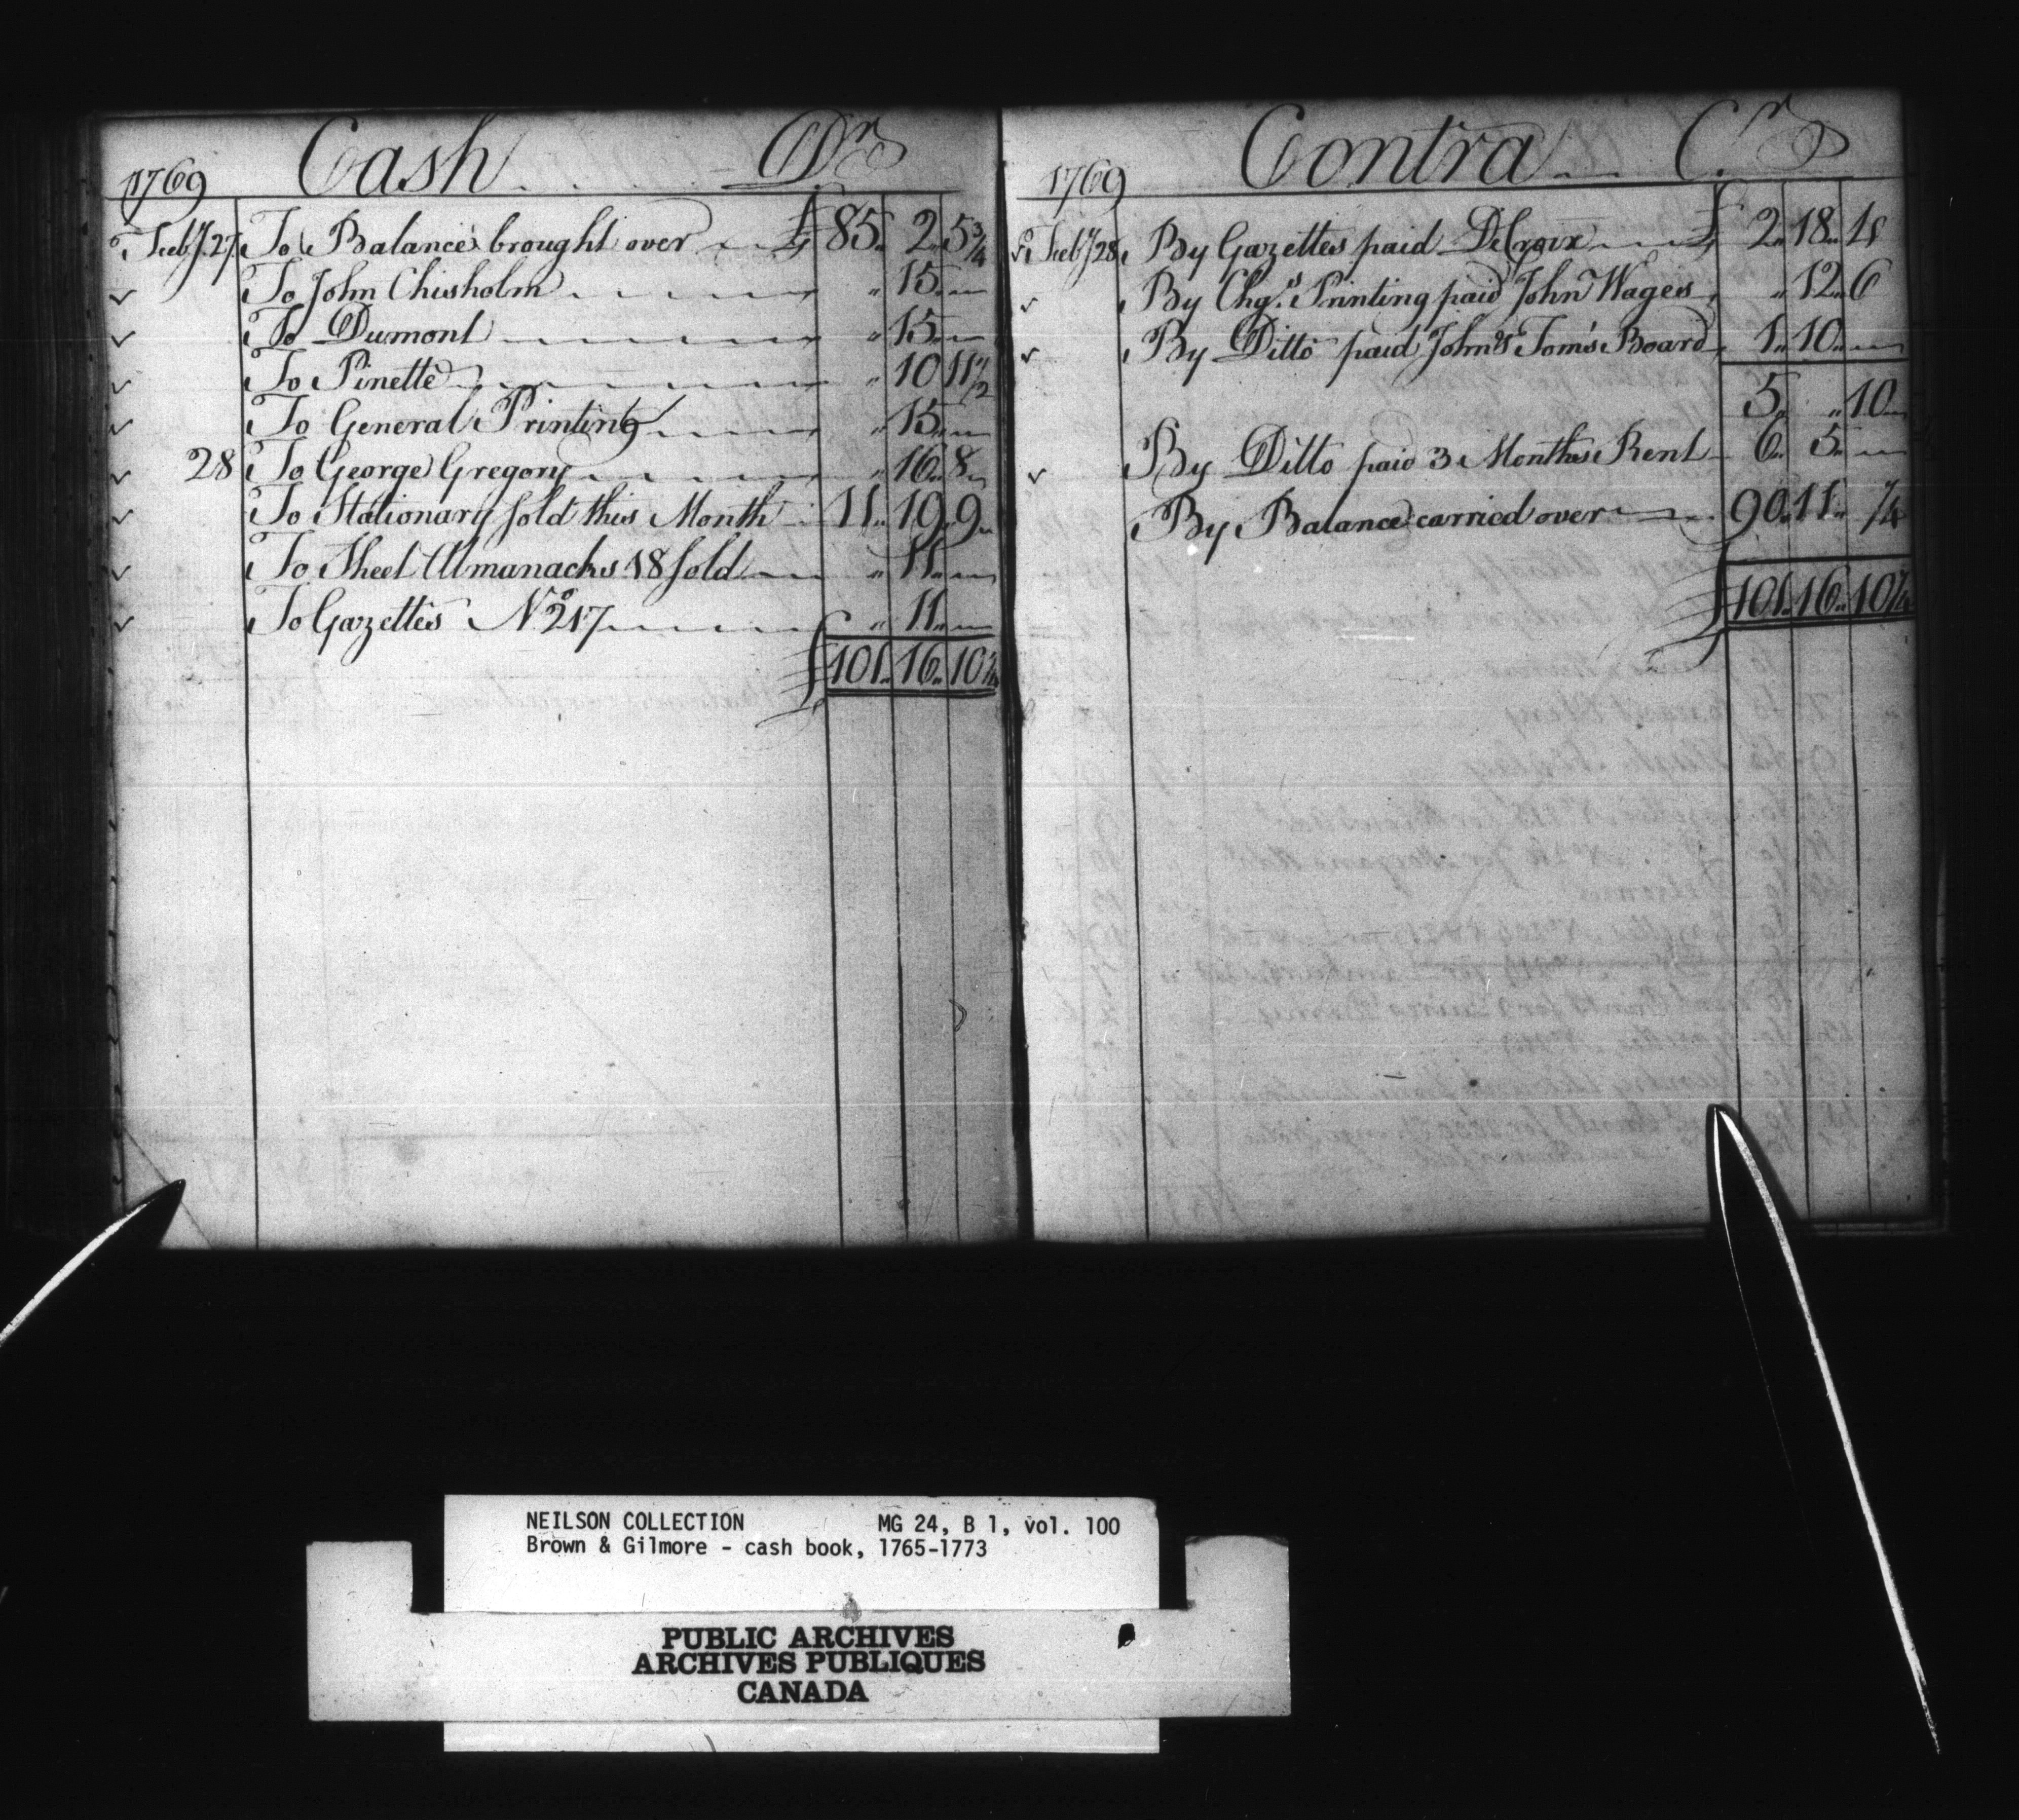 1769 Cash Dr
Feby. 27 To Balance brought over £ 85 2 5 3/4
To John Chisholm " 15 —
To Dumont " 15 —
To Pinette " 10 11 1/2
To General Printing " 15 —
28 To George Gregory " 16 8
To Stationary sold this Month 11 19 9
To Sheet Almanacks 18 sold " 11 —
To Gazettes No 217 " 11 —
£ 101 16 10 1/4
1769 Contra Cr
Feby 28 By Gazettes paid DeCroix £ 2 18 4
By Chgs. Printing paid John Wages " 12 6
By Ditto paid John & Tom's Board 1 10 —
5 " 10
By Ditto paid 3 Months Rent 6 5 —
By Balance carried over 90 11 1/4
£ 101 16 10 1/4
NEILSON COLLECTION MG 24, B 1, vol. 100
Brown & Gilmore - cash book, 1765-1773
PUBLIC ARCHIVES
ARCHIVES PUBLIQUES
CANADA